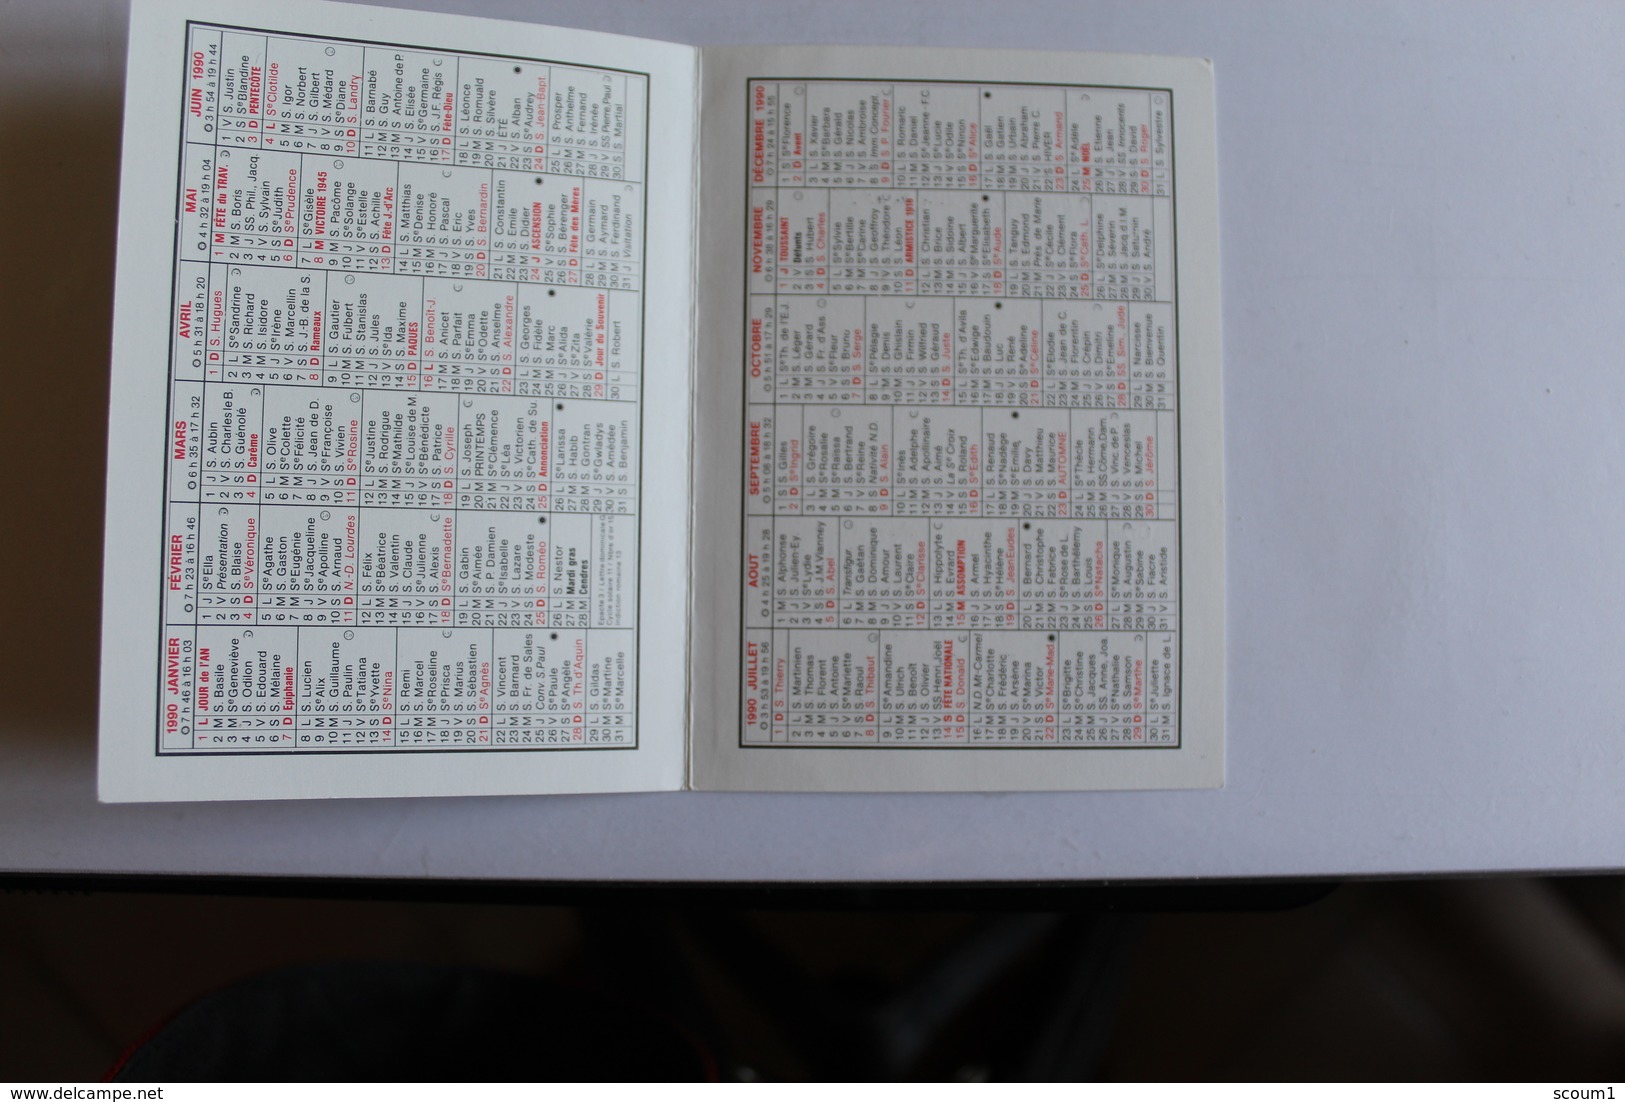 1990 JANVIER
7 h 46 à 16 h 03
1 L JOUR de l'AN
2 M S. Basile
3 M Sᵉ Geneviève
4 J S. Odilon
5 V S. Edouard
6 S S. Mélaine
7 D Epiphanie
8 L S. Lucien
9 M Sᵉ Alix
10 M S. Guillaume
11 J S. Paulin
12 V Sᵉ Tatiana
13 S Sᵉ Yvette
14 D Sᵉ Nina
15 L S. Remi
16 M S. Marcel
17 M Sᵉ Roseline
18 J Sᵉ Prisca
19 V S. Marius
20 S S. Sébastien
21 D Sᵉ Agnès
22 L S. Vincent
23 M S. Barnard
24 M S. Fr. de Sales
25 J Conv. S. Paul
26 V Sᵉ Paule
27 S Sᵉ Angèle
28 D S. Th d'Aquin
29 L S. Gildas
30 M Sᵉ Martine
31 M Sᵉ Marcelle
FÉVRIER
7 h 23 à 16 h 46
1 J Sᵉ Ella
2 V Présentation
3 S S. Blaise
4 D Sᵉ Véronique
5 L Sᵉ Agathe
6 M S. Gaston
7 M Sᵉ Eugénie
8 J Sᵉ Jacqueline
9 V Sᵉ Apolline
10 S S. Arnaud
11 D N.-D. Lourdes
12 L S. Félix
13 M Sᵉ Béatrice
14 M S. Valentin
15 J S. Claude
16 V Sᵉ Julienne
17 S S. Alexis
18 D Sᵉ Bernadette
19 L S. Gabin
20 M Sᵉ Aimée
21 M S. P. Damien
22 J Sᵉ Isabelle
23 V S. Lazare
24 S S. Modeste
25 D S. Roméo
26 L S. Nestor
27 M Mardi gras
28 M Cendres
MARS
6 h 35 à 17 h 32
1 J S. Aubin
2 V S. Charles le B.
3 S S. Guénolé
4 D Carême
5 L S. Olive
6 M Sᵉ Colette
7 M Sᵉ Félicité
8 J S. Jean de D.
9 V Sᵉ Françoise
10 S S. Vivien
11 D Sᵉ Rosine
12 L Sᵉ Justine
13 M S. Rodrigue
14 M Sᵉ Mathilde
15 J Sᵉ Louise de M.
16 V Sᵉ Bénédicte
17 S S. Patrice
18 D S. Cyrille
19 L S. Joseph
20 M PRINTEMPS
21 M Sᵉ Clémence
22 J Sᵉ Léa
23 V S. Victorien
24 S Sᵉ Cath. de Su.
25 D Annonciation
26 L Sᵉ Larissa
27 M S. Habib
28 M S. Gontran
29 J Sᵉ Gwladys
30 V S. Amédée
31 S S. Benjamin
AVRIL
5 h 31 à 18 h 20
1 D S. Hugues
2 L Sᵉ Sandrine
3 M S. Richard
4 M S. Isidore
5 J Sᵉ Irène
6 V S. Marcellin
7 S S. J-B. de la S.
8 D Rameaux
9 L S. Gautier
10 M S. Fulbert
11 M S. Stanislas
12 J S. Jules
13 V Sᵉ Ida
14 S S. Maxime
15 D PAQUES
16 L S. Benoît-J.
17 M S. Anicet
18 M S. Parfait
19 J Sᵉ Emma
20 V Sᵉ Odette
21 S S. Anselme
22 D S. Alexandre
23 L S. Georges
24 M S. Fidèle
25 M S. Marc
26 J Sᵉ Alida
27 V Sᵉ Zita
28 S Sᵉ Valérie
29 D Jour du Souvenir
30 L S. Robert
MAI
4 h 32 à 19 h 04
1 M FÊTE du TRAV.
2 M S. Boris
3 J SS. Phil., Jacq.
4 V S. Sylvain
5 S Sᵉ Judith
6 D Sᵉ Prudence
7 L Sᵉ Gisèle
8 M VICTOIRE 1945
9 M S. Pacôme
10 J Sᵉ Solange
11 V Sᵉ Estelle
12 S S. Achille
13 D Fête J.-d'Arc
14 L S. Matthias
15 M Sᵉ Denise
16 M S. Honoré
17 J S. Pascal
18 V S. Eric
19 S S. Yves
20 D S. Bernardin
21 L S. Constantin
22 M S. Emile
23 M S. Didier
24 J ASCENSION
25 V Sᵉ Sophie
26 S S. Bérenger
27 D Fête des Mères
28 L S. Germain
29 M S. Aymard
30 M S. Ferdinand
31 J Visitation
JUIN 1990
3 h 54 à 19 h 44
1 V S. Justin
2 S Sᵉ Blandine
3 D PENTECÔTE
4 L Sᵉ Clotilde
5 M S. Igor
6 M S. Norbert
7 J S. Gilbert
8 V S. Médard
9 S Sᵉ Diane
10 D S. Landry
11 L S. Barnabé
12 M S. Guy
13 M S. Antoine de P.
14 J S. Elisée
15 V Sᵉ Germaine
16 S S. J.F. Régis
17 D Fête-Dieu
18 L S. Léonce
19 M S. Romuald
20 M S. Silvère
21 J ÉTÉ
22 V S. Alban
23 S Sᵉ Audrey
24 D S. Jean-Bapt.
25 L S. Prosper
26 M S. Anthelme
27 M S. Fernand
28 J S. Irénée
29 V SS. Pierre, Paul
30 S S. Martial
1990 JUILLET
3 h 53 à 19 h 56
1 D S. Thierry
2 L S. Martinien
3 M S. Thomas
4 M S. Florent
5 J S. Antoine
6 V Sᵉ Mariette
7 S S. Raoul
8 D S. Thibaut
9 L Sᵉ Amandine
10 M S. Ulrich
11 M S. Benoît
12 J S. Olivier
13 V SS. Henri, Joël
14 S FÊTE NATIONALE
15 D S. Donald
16 L N.D. Mt-Carmel
17 M Sᵉ Charlotte
18 M S. Frédéric
19 J S. Arsène
20 V Sᵉ Marina
21 S S. Victor
22 D Sᵉ Marie-Mad.
23 L Sᵉ Brigitte
24 M Sᵉ Christine
25 M S. Jacques
26 J SS. Anne, Joa.
27 V Sᵉ Nathalie
28 S S. Samson
29 D Sᵉ Marthe
30 L Sᵉ Juliette
31 M S. Ignace de L.
AOUT
4 h 25 à 19 h 28
1 M S. Alphonse
2 J S. Julien-Ey.
3 V Sᵉ Lydie
4 S S. J.M. Vianney
5 D S. Abel
6 L Transfigur.
7 M S. Gaétan
8 M S. Dominique
9 J S. Amour
10 V S. Laurent
11 S Sᵉ Claire
12 D Sᵉ Clarisse
13 L S. Hippolyte
14 M S. Evrard
15 M ASSOMPTION
16 J S. Armel
17 V S. Hyacinthe
18 S Sᵉ Hélène
19 D S. Jean Eudes
20 L S. Bernard
21 M S. Christophe
22 M S. Fabrice
23 J Sᵉ Rose de L.
24 V S. Barthélemy
25 S S. Louis
26 D Sᵉ Natacha
27 L Sᵉ Monique
28 M S. Augustin
29 M Sᵉ Sabine
30 J S. Fiacre
31 V S. Aristide
SEPTEMBRE
5 h 08 à 18 h 32
1 S S. Gilles
2 D Sᵉ Ingrid
3 L S. Grégoire
4 M Sᵉ Rosalie
5 M Sᵉ Raïssa
6 J S. Bertrand
7 V Sᵉ Reine
8 S Nativité N.D.
9 D S. Alain
10 L Sᵉ Inès
11 M S. Adelphe
12 M S. Apollinaire
13 J S. Aimé
14 V La Sᵉ Croix
15 S S. Roland
16 D Sᵉ Edith
17 L S. Renaud
18 M Sᵉ Nadège
19 M Sᵉ Emilie
20 J S. Davy
21 V S. Matthieu
22 S S. Maurice
23 D AUTOMNE
24 L Sᵉ Thècle
25 M S. Hermann
26 M SS. Côme, Dam.
27 J S. Vinc. de P.
28 V S. Venceslas
29 S S. Michel
30 D S. Jérôme
OCTOBRE
5 h 51 à 17 h 29
1 L Sᵉ Th. de l'E.J.
2 M S. Léger
3 M S. Gérard
4 J S. Fr. d'Ass.
5 V Sᵉ Fleur
6 S S. Bruno
7 D S. Serge
8 L Sᵉ Pélagie
9 M S. Denis
10 M S. Ghislain
11 J S. Firmin
12 V S. Wilfried
13 S S. Géraud
14 D S. Juste
15 L Sᵉ Th. d'Avila
16 M Sᵉ Edwige
17 M S. Baudouin
18 J S. Luc
19 V S. René
20 S Sᵉ Adeline
21 D Sᵉ Céline
22 L Sᵉ Elodie
23 M S. Jean de C.
24 M S. Florentin
25 J S. Crépin
26 V S. Dimitri
27 S Sᵉ Emeline
28 D SS. Sim. Jude
29 L S. Narcisse
30 M Sᵉ Bienvenue
31 M S. Quentin
NOVEMBRE
6 h 38 à 16 h 29
1 J TOUSSAINT
2 V Défunts
3 S S. Hubert
4 D S. Charles
5 L Sᵉ Sylvie
6 M Sᵉ Bertille
7 M Sᵉ Carine
8 J S. Geoffroy
9 V S. Théodore
10 S S. Léon
11 D ARMISTICE 1918
12 L S. Christian
13 M S. Brice
14 M S. Sidoine
15 J S. Albert
16 V Sᵉ Marguerite
17 S Sᵉ Elisabeth
18 D Sᵉ Aude
19 L S. Tanguy
20 M S. Edmond
21 M Prés. de Marie
22 J Sᵉ Cécile
23 V S. Clément
24 S Sᵉ Flora
25 D Sᵉ Cath. L.
26 L Sᵉ Delphine
27 M S. Séverin
28 M S. Jacq. d l M.
29 J S. Saturnin
30 V S. André
DÉCEMBRE 1990
7 h 24 à 15 h 55
1 S Sᵉ Florence
2 D Avent
3 L S. Xavier
4 M Sᵉ Barbara
5 M S. Gérald
6 J S. Nicolas
7 V S. Ambroise
8 S Imm. Concept.
9 D S. P. Fourier
10 L S. Romaric
11 M S. Daniel
12 M Sᵉ Jeanne-F.C
13 J Sᵉ Lucie
14 V Sᵉ Odile
15 S Sᵉ Ninon
16 D Sᵉ Alice
17 L S. Gaël
18 M S. Gatien
19 M S. Urbain
20 J S. Abraham
21 V S. Pierre C.
22 S HIVER
23 D S. Armand
24 L Sᵉ Adèle
25 M NOËL
26 M S. Etienne
27 J S. Jean
28 V SS. Innocents
29 S S. David
30 D S. Roger
31 L S. Sylvestre
scoum1